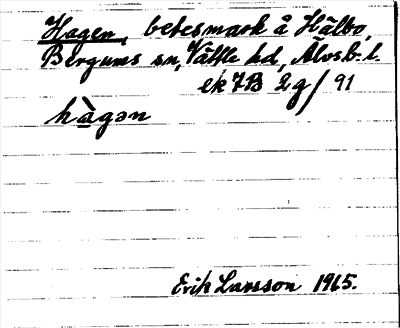 Hagen, betesmark å Hälbo,
Bergums sn, Vättle hd, Älvsb. l.
ek 7B 2g/91
hàgən
Erik Larsson 1965.